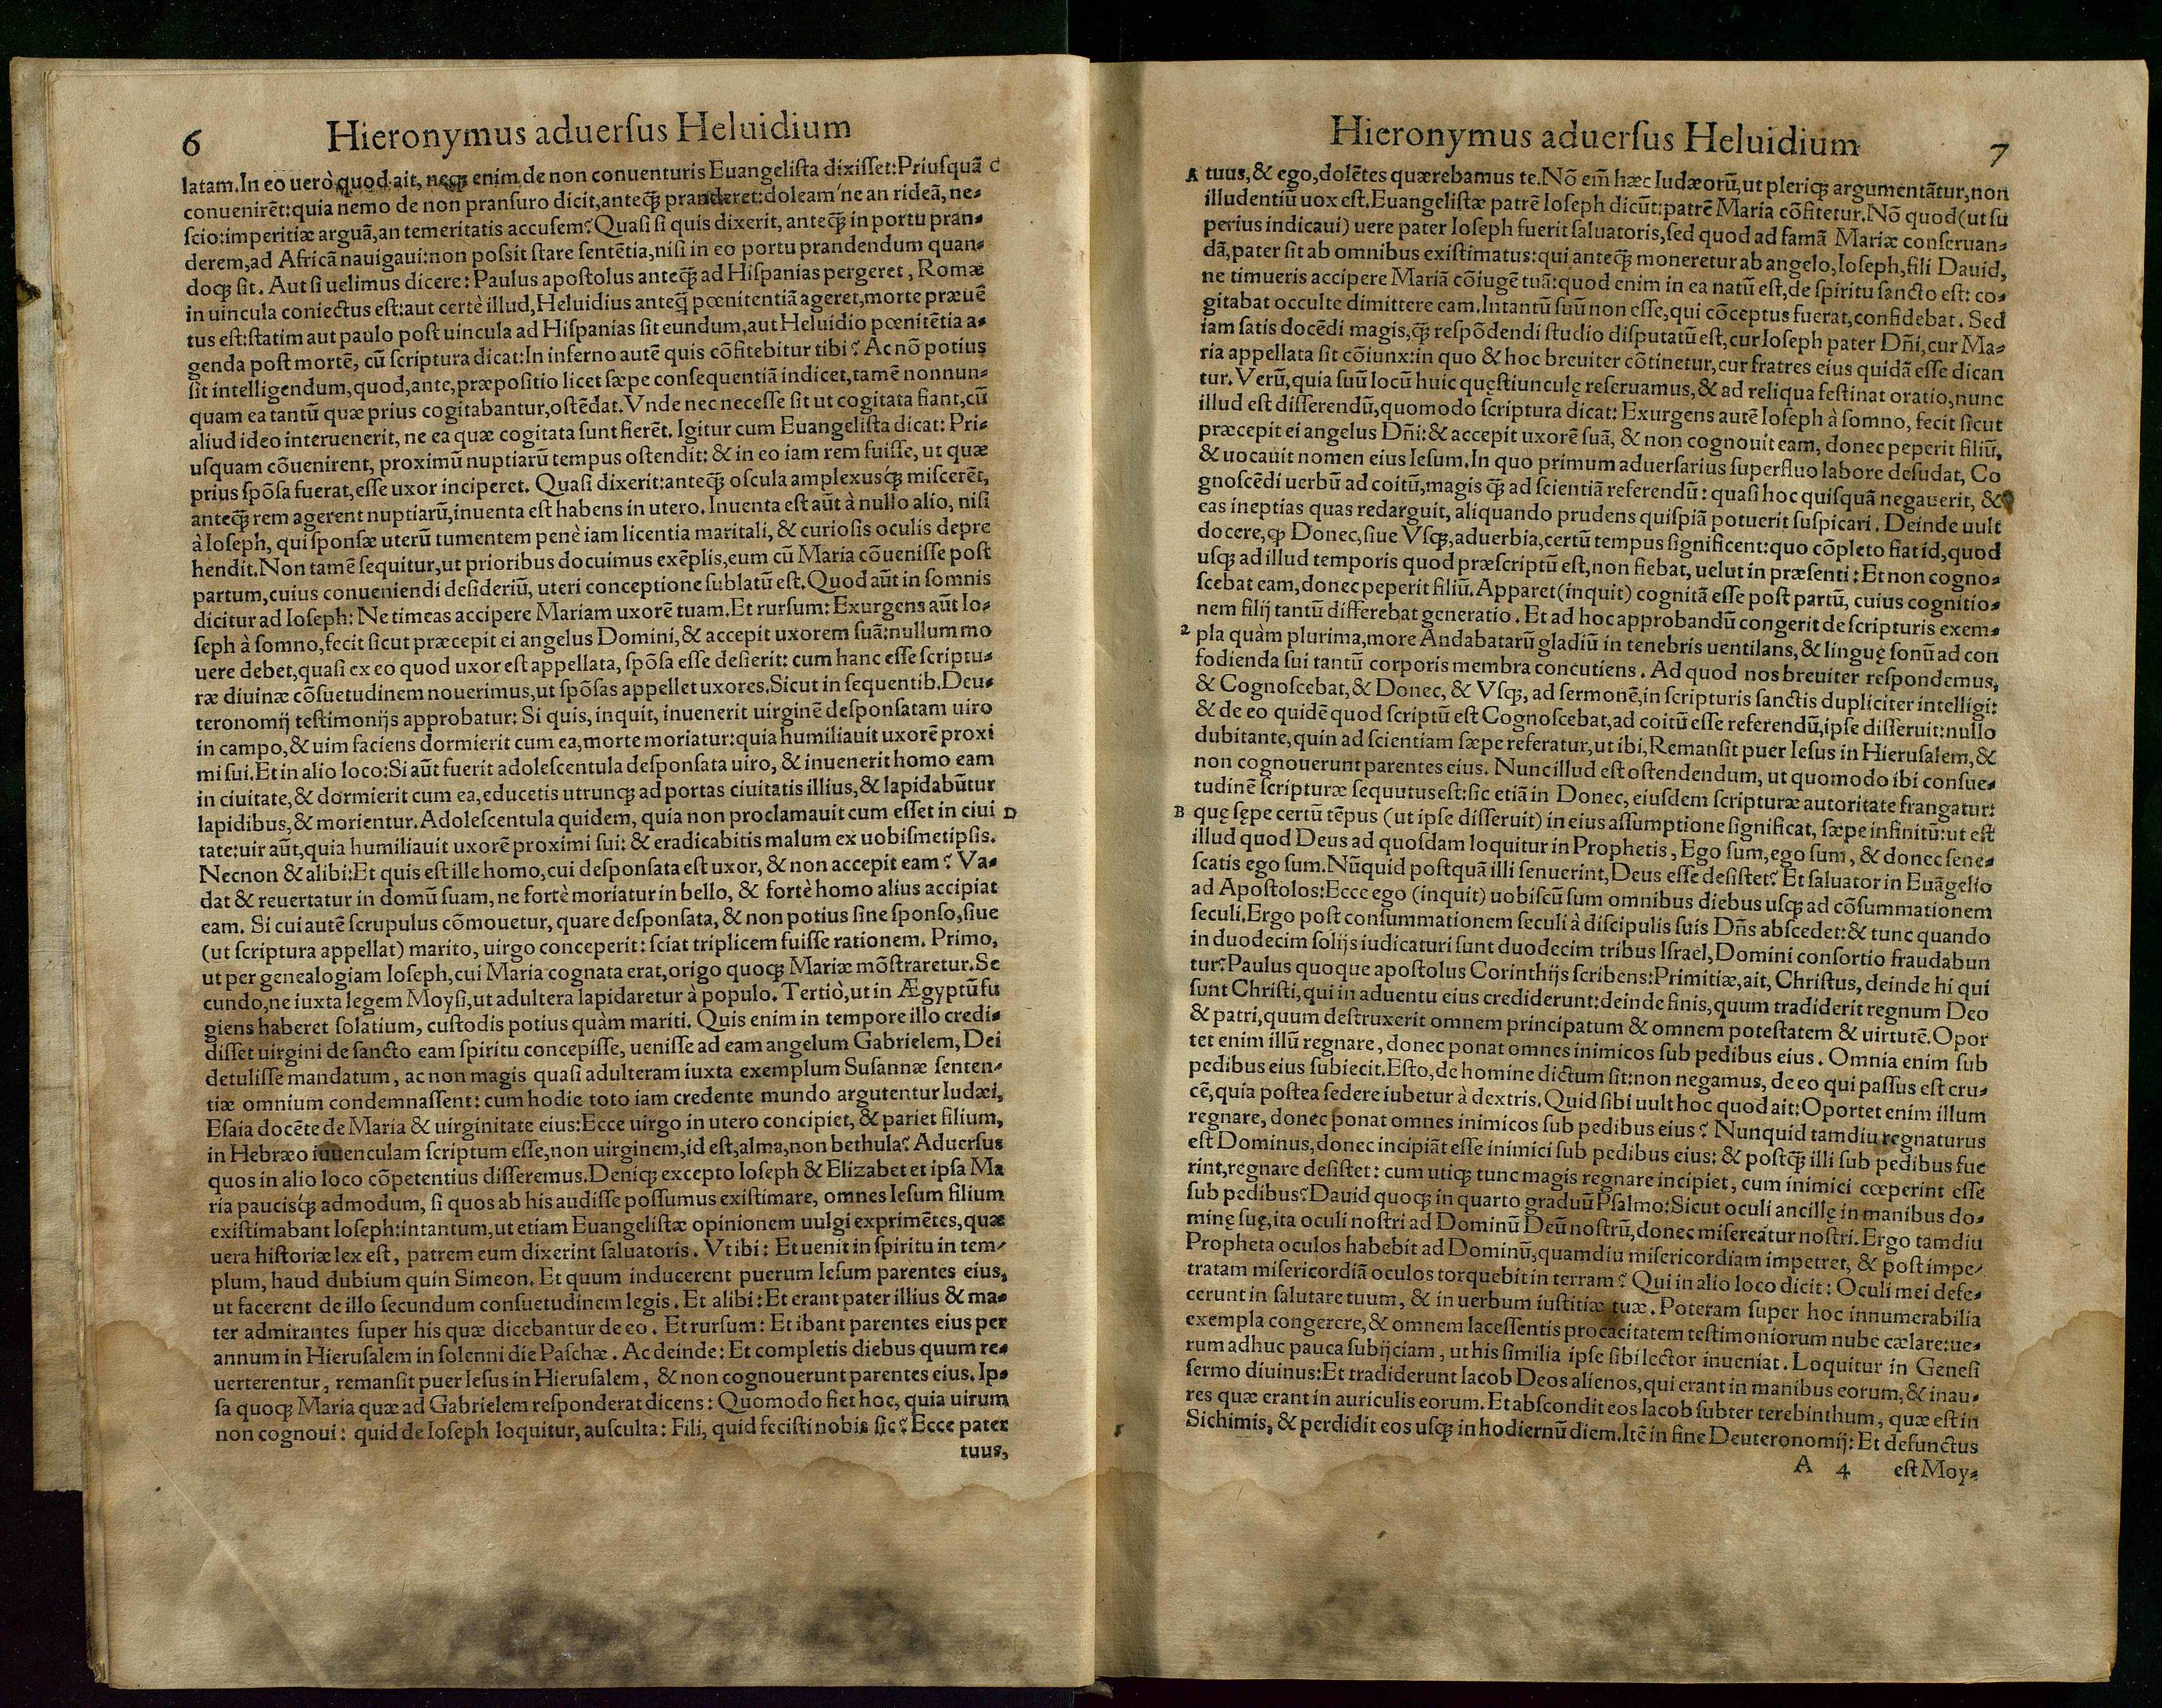 6 Hieronymus aduerſus Heluidium
latam. In eo uerò quod ait, neqꝫ enim de non conuenturis Euangeliſta dixiſſet: Priuſquã C
conuenirẽt: quia nemo de non pranſuro dicit, anteqꝫ̃ pranderet: doleam ne an rideã, ne-
ſcio: imperitiæ arguã, an temeritatis accuſem? Quaſi ſi quis dixerit, anteqꝫ̃ in portu pran-
derem, ad Africã nauigaui: non poſsit ſtare ſentẽtia, niſi in eo portu prandendum quan-
doqꝫ ſit. Aut ſi uelimus dicere: Paulus apoſtolus anteqꝫ̃ ad Hiſpanias pergeret, Romæ
in uincula coniectus eſt: aut certè illud, Heluidius anteq̃ pœnitentiã ageret, morte præuẽ
tus eſt: ſtatim aut paulo poſt uincula ad Hiſpanias ſit eundum, aut Heluidio pœnitẽtia a-
genda poſt mortẽ, cũ ſcriptura dicat: In inferno autẽ quis cõfitebitur tibi? Ac nõ potius
ſit intelligendum, quod, ante, præpoſitio licet ſæpe conſequentiã indicet, tamẽ nonnun-
quam ea tantũ quæ prius cogitabantur, oſtẽdat. Vnde nec neceſſe ſit ut cogitata fiant, cũ
aliud ideo interuenerit, ne ea quæ cogitata ſunt fierẽt. Igitur cum Euangeliſta dicat: Pri-
uſquam cõuenirent, proximũ nuptiarũ tempus oſtendit: & in eo iam rem fuiſſe, ut quæ
prius ſpõſa fuerat, eſſe uxor inciperet. Quaſi dixerit: anteqꝫ̃ oſcula amplexusqꝫ́ miſcerẽt,
anteqꝫ̃ rem agerent nuptiarũ, inuenta eſt habens in utero. Inuenta eſt aũt à nullo alio, niſi
à Ioſeph, qui ſponſæ uterũ tumentem penè iam licentia maritali, & curioſis oculis depre
hendit. Non tamẽ ſequitur, ut prioribus docuimus exẽplis, eum cũ Maria cõueniſſe poſt
partum, cuius conueniendi deſideriũ, uteri conceptione ſublatũ eſt. Quod aũt in ſomnis
dicitur ad Ioſeph: Ne timeas accipere Mariam uxorẽ tuam. Et rurſum: Exurgens aũt Io-
ſeph à ſomno, fecit ſicut præcepit ei angelus Domini, & accepit uxorem ſuã: nullum mo
uere debet, quaſi ex eo quod uxor eſt appellata, ſpõſa eſſe deſierit: cum hanc eſſe ſcriptu-
ræ diuinæ cõſuetudinem nouerimus, ut ſpõſas appellet uxores. Sicut in ſequentib. Deu-
teronomij teſtimonijs approbatur: Si quis, inquit, inuenerit uirginẽ deſponſatam uiro
in campo, & uim faciens dormierit cum ea, morte moriatur: quia humiliauit uxorẽ proxi
mi ſui. Et in alio loco: Si aũt fuerit adoleſcentula deſponſata uiro, & inuenerit homo eam
in ciuitate, & dormierit cum ea, educetis utrunqꝫ ad portas ciuitatis illius, & lapidabũtur
lapidibus, & morientur. Adoleſcentula quidem, quia non proclamauit cum eſſet in ciui D
tate: uir aũt, quia humiliauit uxorẽ proximi ſui: & eradicabitis malum ex uobiſmetipſis.
Necnon & alibi: Et quis eſt ille homo, cui deſponſata eſt uxor, & non accepit eam? Va-
dat & reuertatur in domũ ſuam, ne fortè moriatur in bello, & fortè homo alius accipiat
eam. Si cui autẽ ſcrupulus cõmouetur, quare deſponſata, & non potius ſine ſponſo, ſiue
(ut ſcriptura appellat) marito, uirgo conceperit: ſciat triplicem fuiſſe rationem. Primo,
ut per genealogiam Ioſeph, cui Maria cognata erat, origo quoqꝫ Mariæ mõſtraretur. Se
cundo, ne iuxta legem Moyſi, ut adultera lapidaretur à populo. Tertiò, ut in Ægyptũ fu
giens haberet ſolatium, cuſtodis potius quàm mariti. Quis enim in tempore illo credi-
diſſet uirgini de ſancto eam ſpiritu concepiſſe, ueniſſe ad eam angelum Gabrielem, Dei
detuliſſe mandatum, ac non magis quaſi adulteram iuxta exemplum Suſannæ ſenten-
tiæ omnium condemnaſſent: cum hodie toto iam credente mundo argutentur Iudæi,
Eſaia docẽte de Maria & uirginitate eius: Ecce uirgo in utero concipiet, & pariet filium,
in Hebræo iuuenculam ſcriptum eſſe, non uirginem, id eſt, alma, non bethula? Aduerſus
quos in alio loco cõpetentius diſſeremus. Deniqꝫ excepto Ioſeph & Elizabet et ipſa Ma
ria paucisqꝫ́ admodum, ſi quos ab his audiſſe poſſumus exiſtimare, omnes Ieſum filium
exiſtimabant Ioſeph: intantum, ut etiam Euangeliſtæ opinionem uulgi exprimẽtes, quæ
uera hiſtoriæ lex eſt, patrem eum dixerint ſaluatoris. Vt ibi: Et uenit in ſpiritu in tem-
plum, haud dubium quin Simeon. Et quum inducerent puerum Ieſum parentes eius,
ut facerent de illo ſecundum conſuetudinem legis. Et alibi: Et erant pater illius & ma-
ter admirantes ſuper his quæ dicebantur de eo. Et rurſum: Et ibant parentes eius per
annum in Hieruſalem in ſolenni die Paſchæ. Ac deinde: Et completis diebus quum re-
uerterentur, remanſit puer Ieſus in Hieruſalem, & non cognouerunt parentes eius. Ip-
ſa quoqꝫ Maria quæ ad Gabrielem reſponderat dicens: Quomodo fiet hoc, quia uirum
non cognoui: quid de Ioſeph loquitur, auſculta: Fili, quid feciſti nobis ſic? Ecce pater
tuus,
Hieronymus aduerſus Heluidium 7
A tuus, & ego, dolẽtes quærebamus te. Nõ em̃ hæc Iudæorũ, ut pleriqꝫ argumentãtur, non
illudentiũ uox eſt. Euangeliſtæ patrẽ Ioſeph dicũt: patrẽ Maria cõfitetur. Nõ quod (ut ſu
perius indicaui) uere pater Ioſeph fuerit ſaluatoris, ſed quod ad famã Mariæ conſeruan-
dã, pater ſit ab omnibus exiſtimatus: qui anteqꝫ̃ moneretur ab angelo, Ioſeph, fili Dauid,
ne timueris accipere Mariã cõiugẽ tuã: quod enim in ea natũ eſt, de ſpiritu ſancto eſt: co-
gitabat occulte dimittere eam. Intantũ ſuũ non eſſe, qui cõceptus fuerat, confidebat. Sed
iam ſatis docẽdi magis, qꝫ̃ reſpõdendi ſtudio diſputatũ eſt, cur Ioſeph pater Dñi, cur Ma-
ria appellata ſit cõiunx: in quo & hoc breuiter cõtinetur, cur fratres eius quidã eſſe dican
tur. Verũ, quia ſuũ locũ huic quęſtiunculę reſeruamus, & ad reliqua feſtinat oratio, nunc
illud eſt diſſerendũ, quomodo ſcriptura dicat: Exurgens autẽ Ioſeph à ſomno, fecit ſicut
præcepit ei angelus Dñi: & accepit uxorẽ ſuã, & non cognouit eam, donec peperit filiũ,
& uocauit nomen eius Ieſum. In quo primum aduerſarius ſuperfluo labore deſudat, Co
gnoſcẽdi uerbũ ad coitũ, magis qꝫ̃ ad ſcientiã referendũ: quaſi hoc quiſquã negauerit, &
eas ineptias quas redarguit, aliquando prudens quiſpiã potuerit ſuſpicari. Deinde uult
docere, ꝙ Donec, ſiue Vſqꝫ, aduerbia, certũ tempus ſignificent: quo cõpleto fiat id, quod
uſqꝫ ad illud temporis quod præſcriptũ eſt, non fiebat, uelut in præſenti: Et non cogno-
ſcebat eam, donec peperit filiũ. Apparet (inquit) cognitã eſſe poſt partũ, cuius cognitio-
nem filij tantũ differebat generatio. Et ad hoc approbandũ congerit de ſcripturis exem-
2 pla quàm plurima, more Andabatarũ gladiũ in tenebris uentilans, & linguę ſonũ ad con
fodienda ſui tantũ corporis membra concutiens. Ad quod nos breuiter reſpondemus,
& Cognoſcebat, & Donec, & Vſqꝫ, ad ſermonẽ, in ſcripturis ſanctis dupliciter intelligi:
& de eo quidẽ quod ſcriptũ eſt Cognoſcebat, ad coitũ eſſe referendũ, ipſe diſſeruit: nullo
dubitante, quin ad ſcientiam ſæpe referatur, ut ibi, Remanſit puer Ieſus in Hieruſalem, &
non cognouerunt parentes eius. Nunc illud eſt oſtendendum, ut quomodo ibi conſue-
tudinẽ ſcripturæ ſequutus eſt: ſic etiã in Donec, eiuſdem ſcripturæ autoritate frangatur:
B quę ſępe certũ tẽpus (ut ipſe diſſeruit) in eius aſſumptione ſignificat, ſæpe infinitũ: ut eſt
illud quod Deus ad quoſdam loquitur in Prophetis, Ego ſum, ego ſum, & donec ſene-
ſcatis ego ſum. Nũquid poſtquã illi ſenuerint, Deus eſſe deſiſtet? Et ſaluator in Euãgelio
ad Apoſtolos: Ecce ego (inquit) uobiſcũ ſum omnibus diebus uſqꝫ ad cõſummationem
ſeculi. Ergo poſt conſummationem ſeculi à diſcipulis ſuis Dñs abſcedet: & tunc quando
in duodecim ſolijs iudicaturi ſunt duodecim tribus Iſrael, Domini conſortio fraudabun
tur? Paulus quoque apoſtolus Corinthijs ſcribens: Primitiæ, ait, Chriſtus, deinde hi qui
ſunt Chriſti, qui in aduentu eius crediderunt: deinde finis, quum tradiderit regnum Deo
& patri, quum deſtruxerit omnem principatum & omnem poteſtatem & uirtutẽ. Opor
tet enim illũ regnare, donec ponat omnes inimicos ſub pedibus eius. Omnia enim ſub
pedibus eius ſubiecit. Eſto, de homine dictum ſit: non negamus, de eo qui paſſus eſt cru-
cẽ, quia poſtea ſedere iubetur à dextris. Quid ſibi uult hoc quod ait: Oportet enim illum
regnare, donec ponat omnes inimicos ſub pedibus eius? Nunquid tamdiu regnaturus
eſt Dominus, donec incipiãt eſſe inimici ſub pedibus eius: & poſtqꝫ̃ illi ſub pedibus fue
rint, regnare deſiſtet: cum utiqꝫ tunc magis regnare incipiet, cum inimici cœperint eſſe
ſub pedibus? Dauid quoqꝫ in quarto graduũ Pſalmo: Sicut oculi ancillę in manibus do-
minę ſuę, ita oculi noſtri ad Dominũ Deũ noſtrũ, donec miſereatur noſtri. Ergo tamdiu
Propheta oculos habebit ad Dominũ, quamdiu miſericordiam impetret, & poſt impe-
tratam miſericordiã oculos torquebit in terram? Qui in alio loco dicit: Oculi mei defe-
cerunt in ſalutare tuum, & in uerbum iuſtitiæ tuæ. Poteram ſuper hoc innumerabilia
exempla congerere, & omnem laceſſentis procacitatem teſtimoniorum nube cælare: ue-
rum adhuc pauca ſubijciam, ut his ſimilia ipſe ſibi lector inueniat. Loquitur in Geneſi
ſermo diuinus: Et tradiderunt Iacob Deos alienos, qui erant in manibus eorum, & inau-
res quæ erant in auriculis eorum. Et abſcondit eos Iacob ſubter terebinthum, quæ eſt in
Sichimis, & perdidit eos uſqꝫ in hodiernũ diem. Itẽ in fine Deuteronomij: Et defunctus
A 4 eſt Moy-